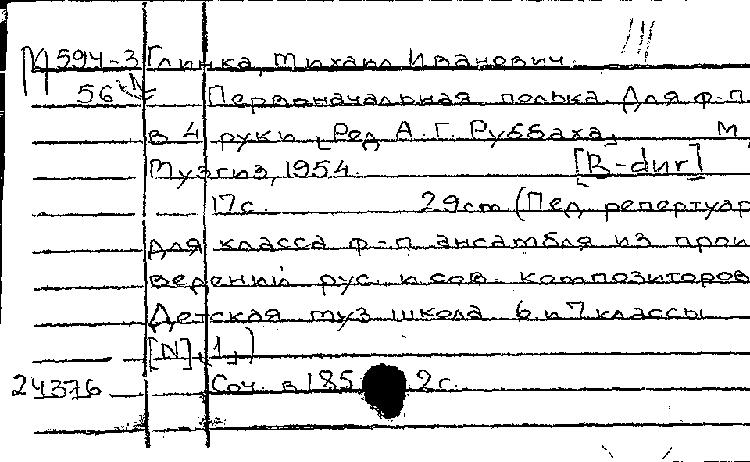 М 594-3 Глинка, Михаил Иванович.
56
Первоначальная полька для ф-п.
в 4 руки [Ред. А. Г. Руббаха] М,
Музгиз, 1954. [B-dur]
17 с. 29 cm (Пед. репертуар
для класса ф-п ансамбля из прои
ведений рус. и сов. композиторов
Детская муз школа 6 и 7 классы
[N], 1,)
24376 Соч. в 185 2 г.